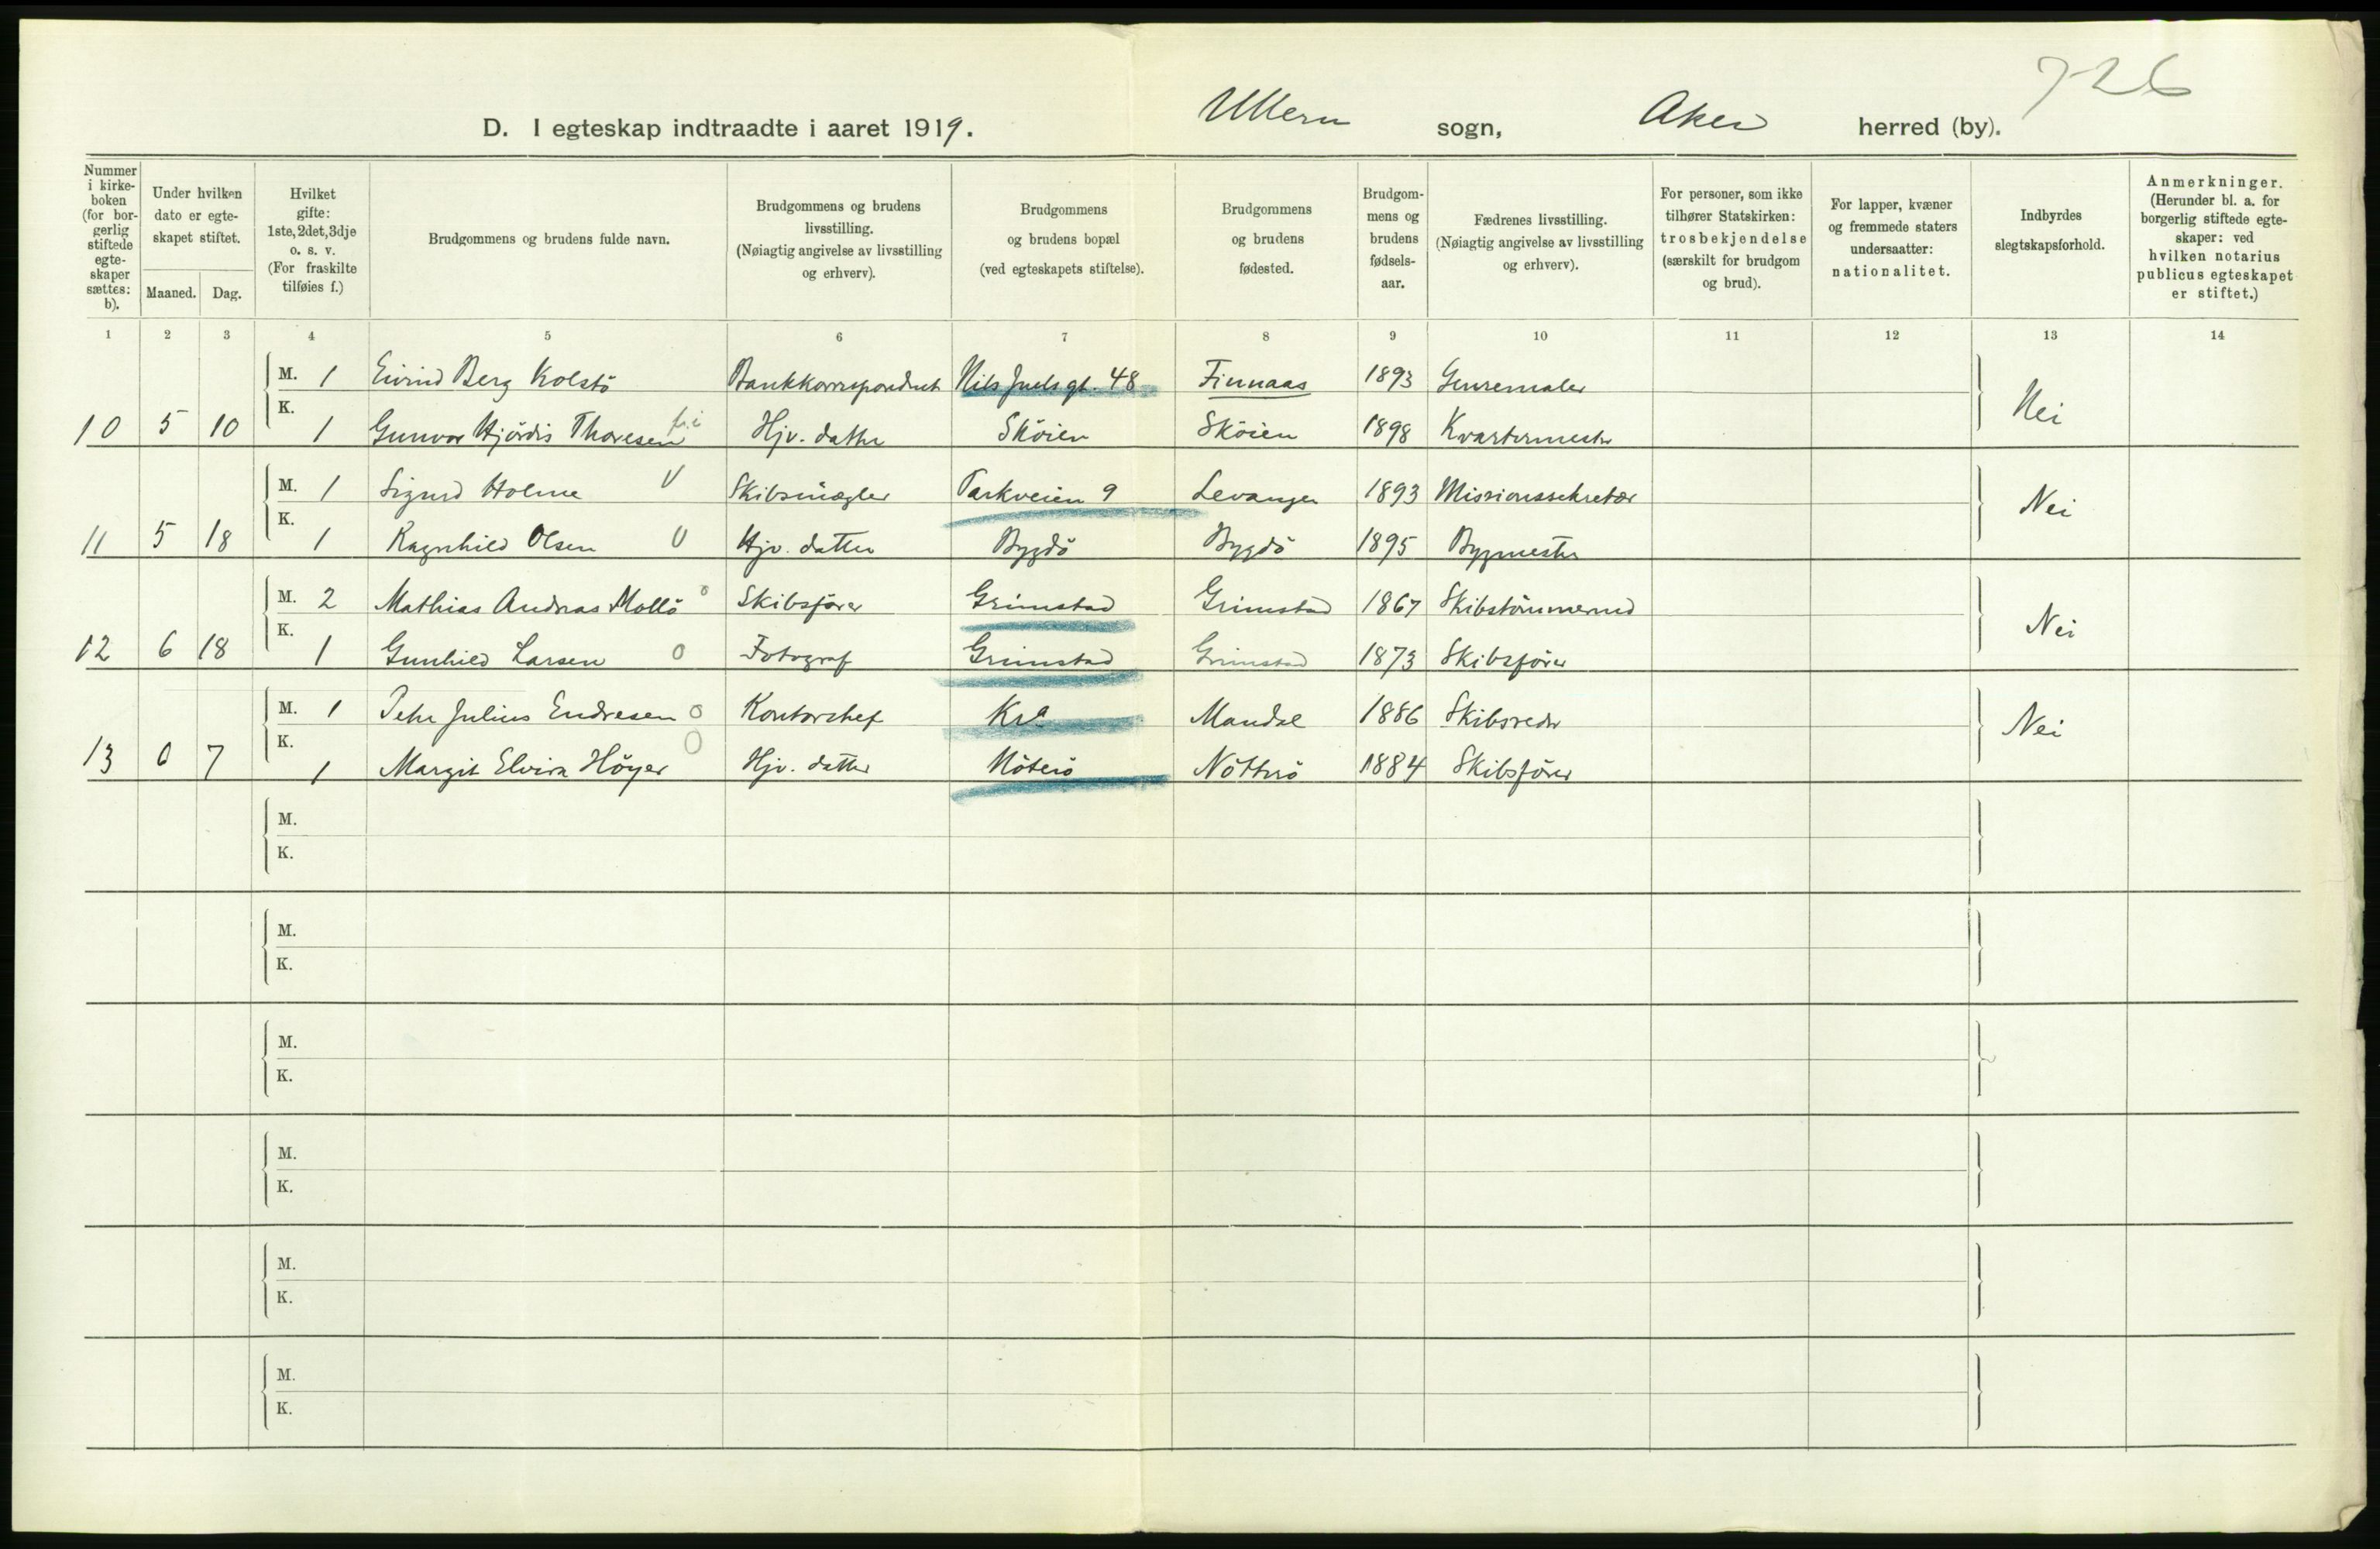 726
D. I egteskap indtraadte i aaret 1919. Ullern sogn, Aker herred (by).
Nummer i kirkeboken (for borgerlig stiftede egteskaper sættes: b).
Under hvilken dato er egteskapet stiftet.
Maaned. Dag.
Hvilket gifte: 1ste, 2det, 3dje o. s. v. (For fraskilte tilføies f.)
Brudgommens og brudens fulde navn.
Brudgommens og brudens livsstilling. (Nøiagtig angivelse av livsstilling og erhverv).
Brudgommens og brudens bopæl (ved egteskapets stiftelse).
Brudgommens og brudens fødested.
Brudgommens og brudens fødselsaar.
Fædrenes livsstilling. (Nøiagtig angivelse av livsstilling og erhverv).
For personer, som ikke tilhører Statskirken: trosbekjendelse (særskilt for brudgom og brud).
For lapper, kvæner og fremmede staters undersaatter: nationalitet.
Indbyrdes slegtskapsforhold.
Anmerkninger. (Herunder bl. a. for borgerlig stiftede egteskaper: ved hvilken notarius publicus egteskapet er stiftet.)
1 2 3 4 5 6 7 8 9 10 11 12 13 14
M. 1 Eivind Berg Kolstö Bankkorrespondent Nils Juels gt. 48 Finnaas 1893 Genremaler
10 5 10 K. 1 Gunvor Hjördis Thoresen Hjv. datter Sköien Sköien 1898 Kvartermester Nei
M. 1 Sigurd Holme Skibsmægler Parkveien 9 Levanger 1893 Missionssekretær
11 5 18 K. 1 Ragnhild Olsen Hjv. datter Bygdö Bygdö 1895 Bygmester Nei
M. 2 Mathias Andreas Mollö Skibsfører Grimstad Grimstad 1867 Skibstömmermd
12 6 18 K. 1 Gunhild Larsen Fotograf Grimstad Grimstad 1873 Skibsfører Nei
M. 1 Peter Julius Endresen Kontorchef Kra Mandal 1886 Skibsreder
13 6 7 K. 1 Margit Elvira Höyer Hjv. datter Nöterö Nötterö 1884 Skibsfører Nei
M.
K.
M.
K.
M.
K.
M.
K.
M.
K.
M.
K.